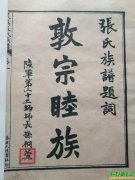 張氏族譜題詞
敦宗睦族
陸軍第十三師師長孫